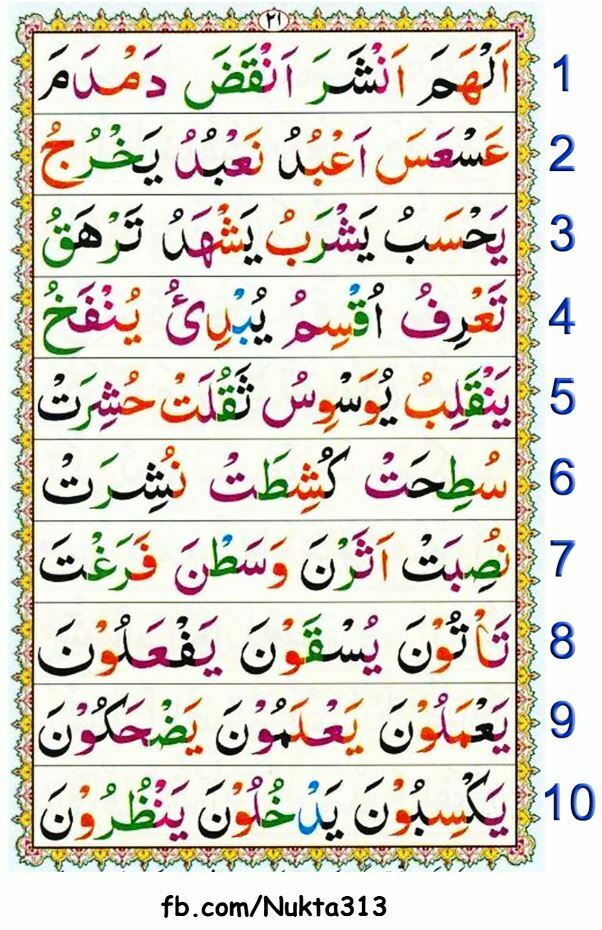 ٢١
اَلْهَمَ اَنْشَرَ اَنْقَضَ دَمْدَمَ 1
عَسْعَسَ اَعْبُدُ نَعْبُدُ يَخْرُجُ 2
يَحْسَبُ يَشْرَبُ يَشْهَدُ تَرْهَقُ 3
تَعْرِفُ اُقْسِمُ يُبْدِئُ يُنْفَخُ 4
يَنْقَلِبُ يُوَسْوِسُ ثَقُلَتْ حُشِرَتْ 5
سُطِحَتْ كُشِطَتْ نُشِرَتْ 6
نُصِبَتْ اَثَرْنَ وَسَطْنَ فَرَغْتَ 7
تَأْتُوْنَ يُسْقَوْنَ يَفْعَلُوْنَ 8
يَعْمَلُوْنَ يَعْلَمُوْنَ يَضْحَكُوْنَ 9
يَكْسِبُوْنَ يَدْخُلُوْنَ يَنْظُرُوْنَ 10
fb.com/Nukta313